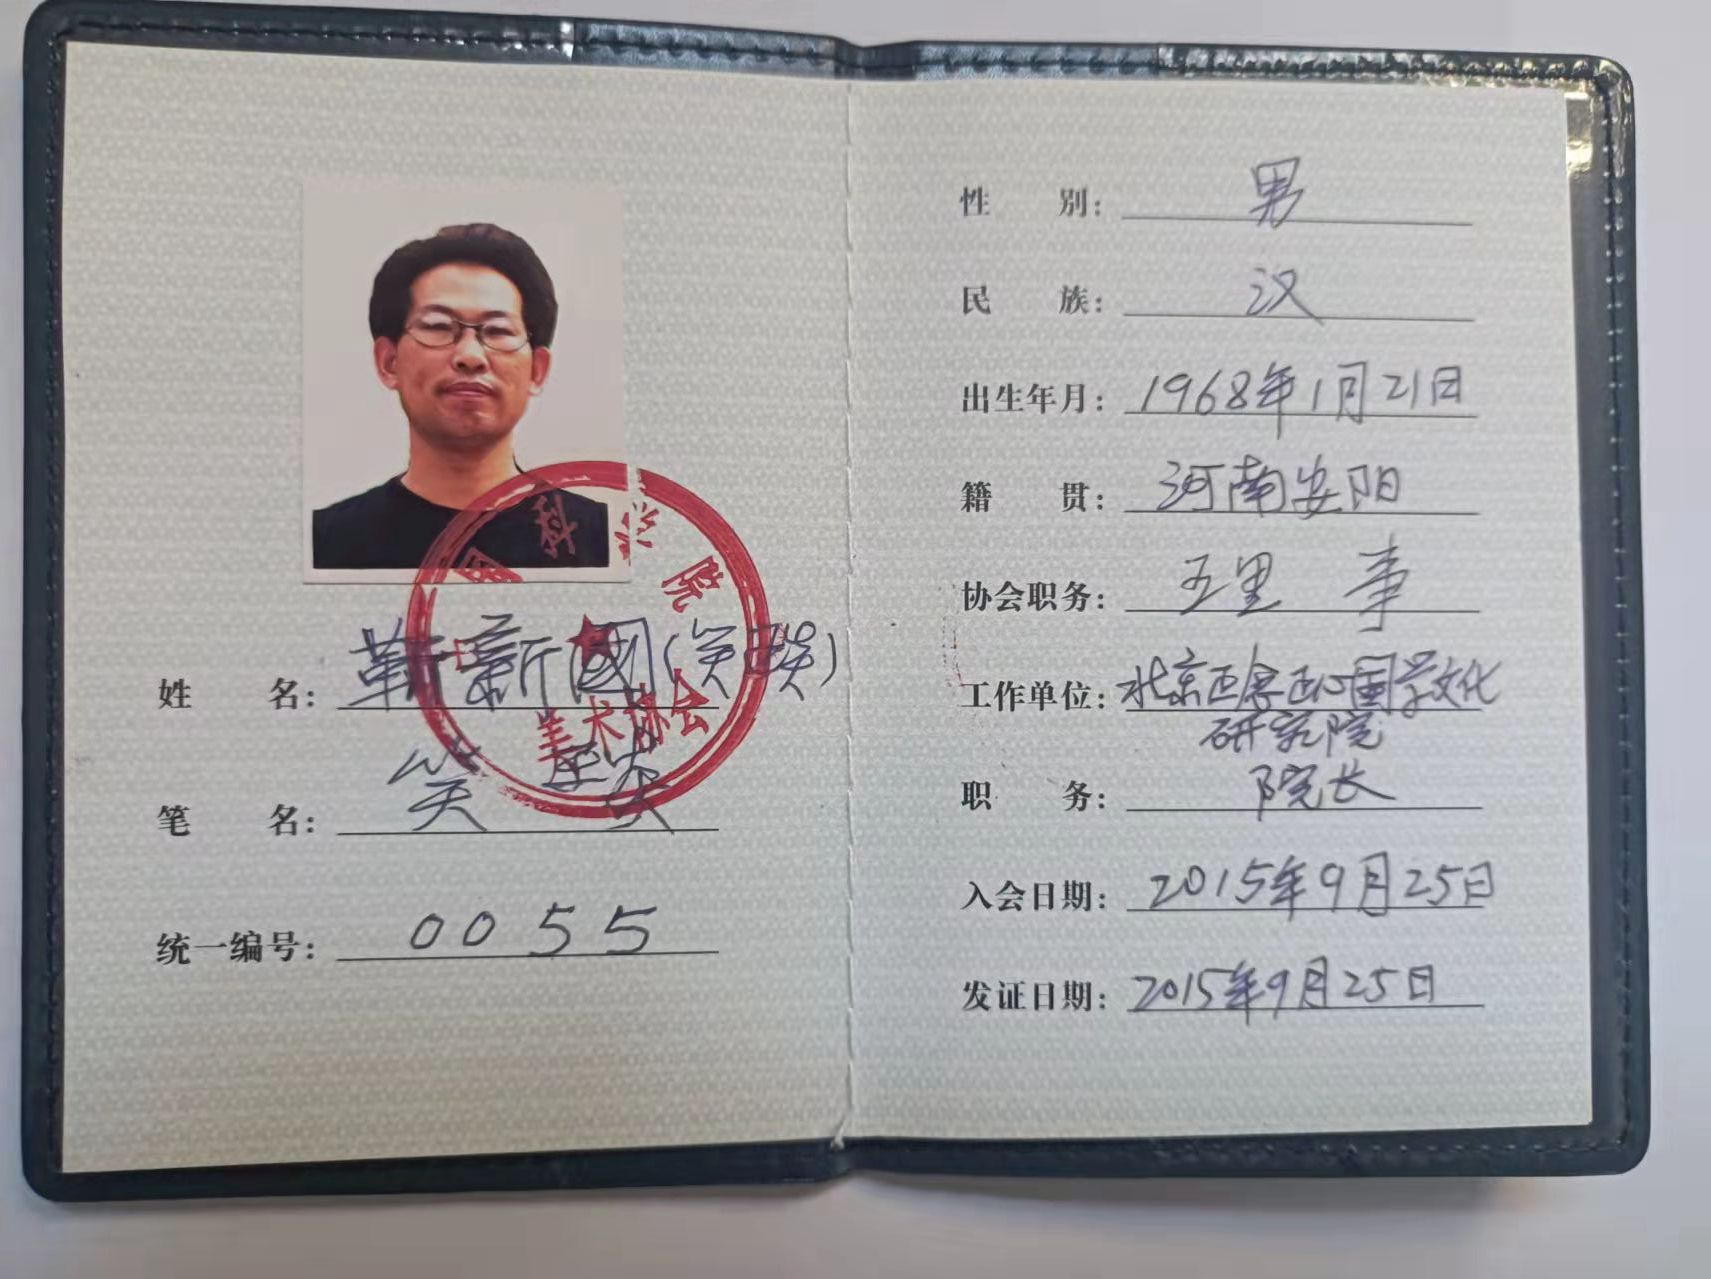 中国科学院
美术协会
姓 名：靳新國（笑琰）
笔 名：笑 琰
统一编号：0055
性 别：男
民 族：汉
出生年月：1968年1月21日
籍 贯：河南安阳
协会职务：理 事
工作单位：北京正念正心国学文化
研究院
职 务：院长
入会日期：2015年9月25日
发证日期：2015年9月25日